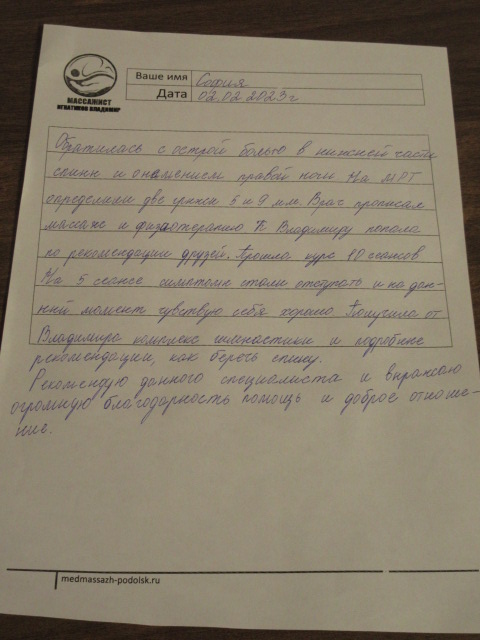 МАССАЖИСТ
ИГНАТИКОВ ВЛАДИМИР
Ваше имя София
Дата 02.02 2023г
Обратилась с острой болью в нижней части
спины и онемением правой ноги. На МРТ
определили две грыжи 6 и 9 мм. Врач прописал
массаж и физиотерапию. К Владимиру попала
по рекомендации друзей. Прошла курс 10 сеансов
На 5 сеансе симптомы стали отступать и на дан-
ный момент чувствую себя хорошо. Получила от
Владимира комплекс гимнастики и подробные
рекомендации, как беречь спину.
Рекомендую данного специалиста и выражаю
огромную благодарность помощь и доброе отноше-
ние.
medmassazh-podolsk.ru